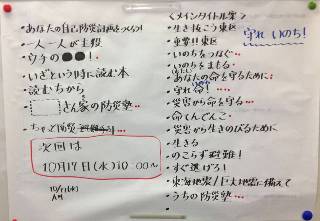 ・あなたの防災計画をつくろう!
・一人一人が主役
・ウチの●●!
・いざという時に読む本
・読むちから
・さん家の防災塾…
・ちょこ防災
次回は
10月17日(水)10:00~
10/17(水)
AM
<メインタイトル案>
・生き抜こう東区
・重要!!東区
・いのちをつなぐ…
・いのちをまもる…
・あなたの命を守るために…
・守れ命!…
・災害から命を守る…
・命てんでんこ
・災害から生きのびるために
・生きる
・のこらず避難!
・すぐ逃げろ!
・東海地震/巨大地震に備えて
・うちの防災塾…
守れ いのち!